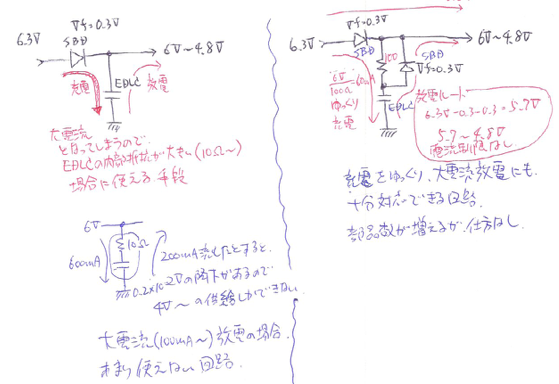 Vf=0.3V
6.3V
SBD
6V～4.8V
EDLC
充電
放電
大電流
となってしまうので
EDLCの内部抵抗が大きい(10Ω～)
場合に使える手段
6V
10Ω
600mA
200mA流したとすると、
0.2×10=2Vの降下があるので
4V～の供給しかできない
大電流(100mA～)放電の場合
あまり使えない回路
Vf=0.3V
6.3V
SBD
6V～4.8V
100
SBD
Vf=0.3V
6V
100Ω
60mA
ゆっくり
充電
EDLC
放電ルート
6.3V-0.3-0.3=5.7V
5.7～4.8V
電流制限なし
充電をゆっくり、大電流放電にも
十分対応できる回路
部品数が増えるが仕方なし